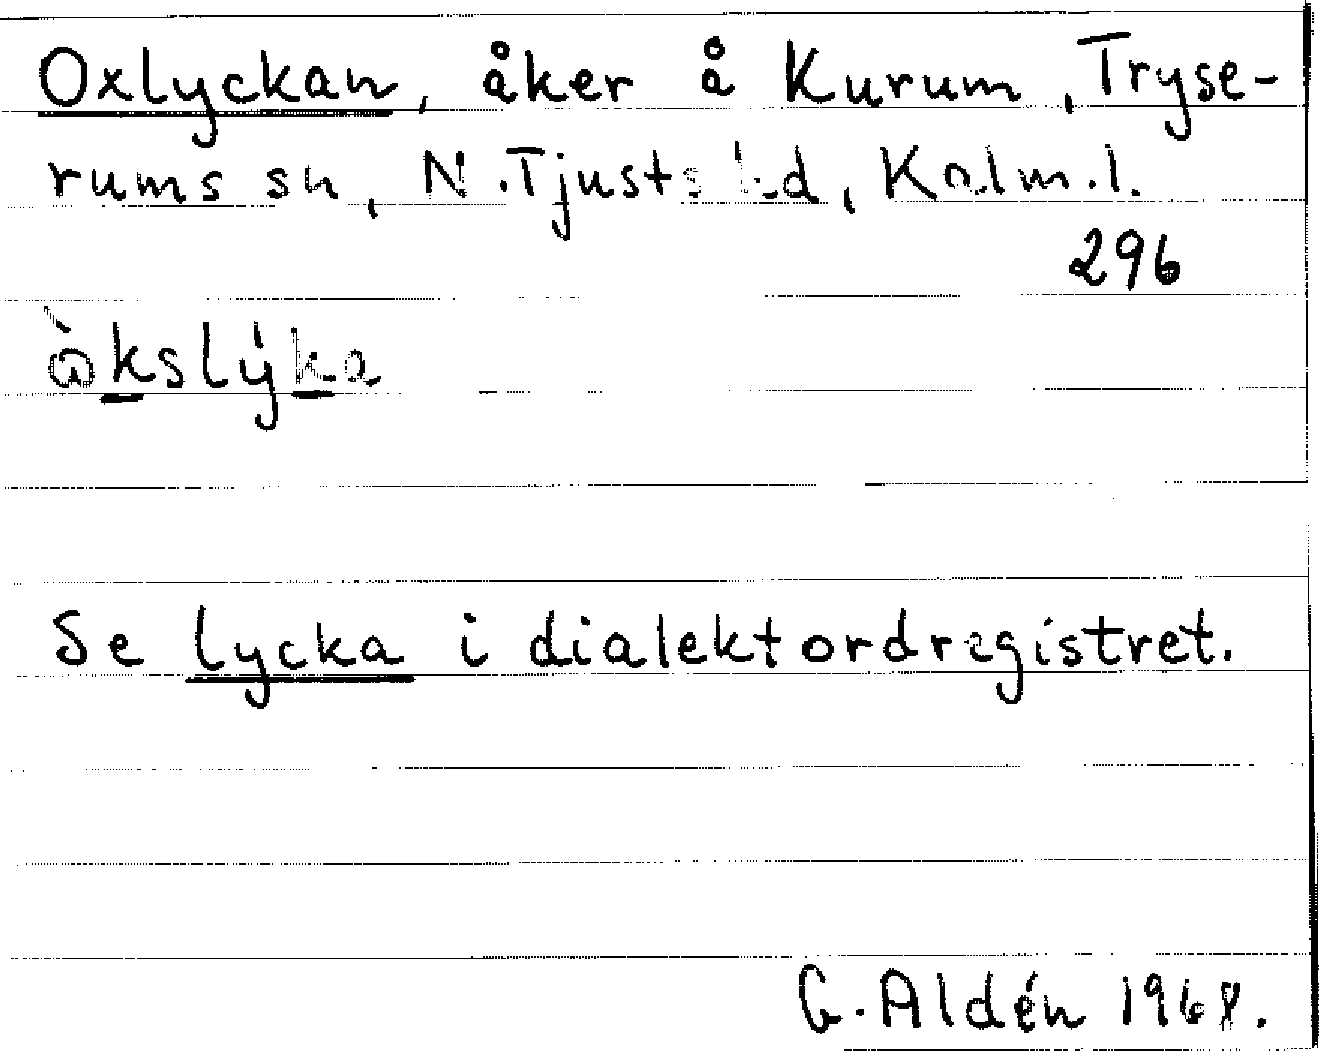 Oxlyckan, åker å Kurum, Tryse-
rums sn, N. Tjusts hd, Kalm. l.
296
Se lycka i dialektordregistret.
G. Aldén 1968.